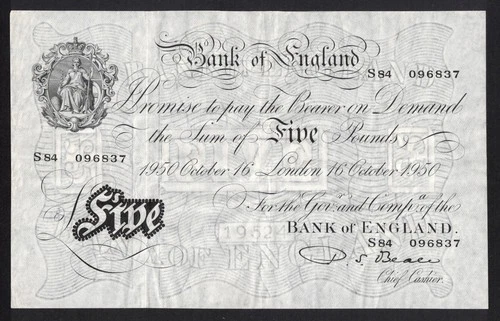 Bank of England
S84 096837
I Promise to pay the Bearer on Demand
the Sum of Five Pounds
S84 096837
1950 October 16 London 16 October 1950
Five
For the Govr. and Compa. of the
BANK OF ENGLAND.
S84 096837
P. S. Beale
Chief Cashier.